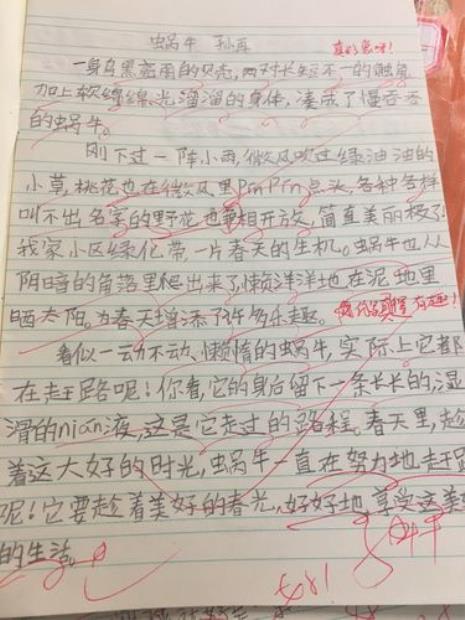 蜗牛 孙冉
真的象呀!
一身乌黑蓝雨的贝壳,两对长短不一的触角
加上软绵绵、光溜溜的身体,凑成了慢吞吞
的蜗牛。
刚下过一阵小雨,微风吹过绿油油的
小草,桃花也在微风里PinPin点头,各种各样
叫不出名字的野花也相开放,简直美丽极了!
我家小区绿化带,一片春天的生机。蜗牛也从
阴暗的角落里爬出来了,懒洋洋地在泥地里
晒太阳。为春天增添了许多乐趣。 有趣!
看似一动不动、懒惰的蜗牛,实际上它都
在赶路呢!你看,它的身后留下一条长长的湿
滑的nian液,这是它走过的路程。春天里,趁
着这大好的时光,蜗牛一直在努力地走路
呢!它要趁着美好的春光,好好地享受这美
的生活。